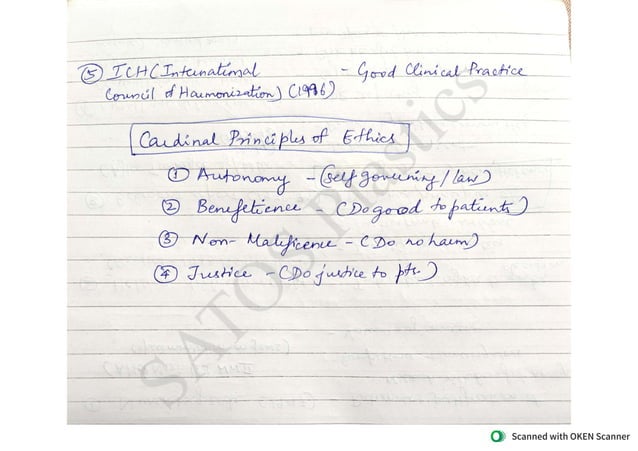 ⑤ ICH (International - Good Clinical Practice
Council of Harmonization) (1996)
Cardinal Principles of Ethics
① Autonomy - (self governing / law)
② Benefetience - (Do good to patients)
③ Non-Maleficence - (Do no harm)
④ Justice - (Do justice to pts.)
SATOS Plastics
Scanned with OKEN Scanner